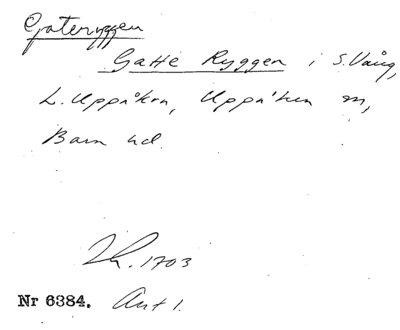 Gateryggen
Gatte Ryggen i S. Vång,
L. Uppåkra, Uppåkra sn,
Bara hd.
1703
Nr 6384. Ant 1.